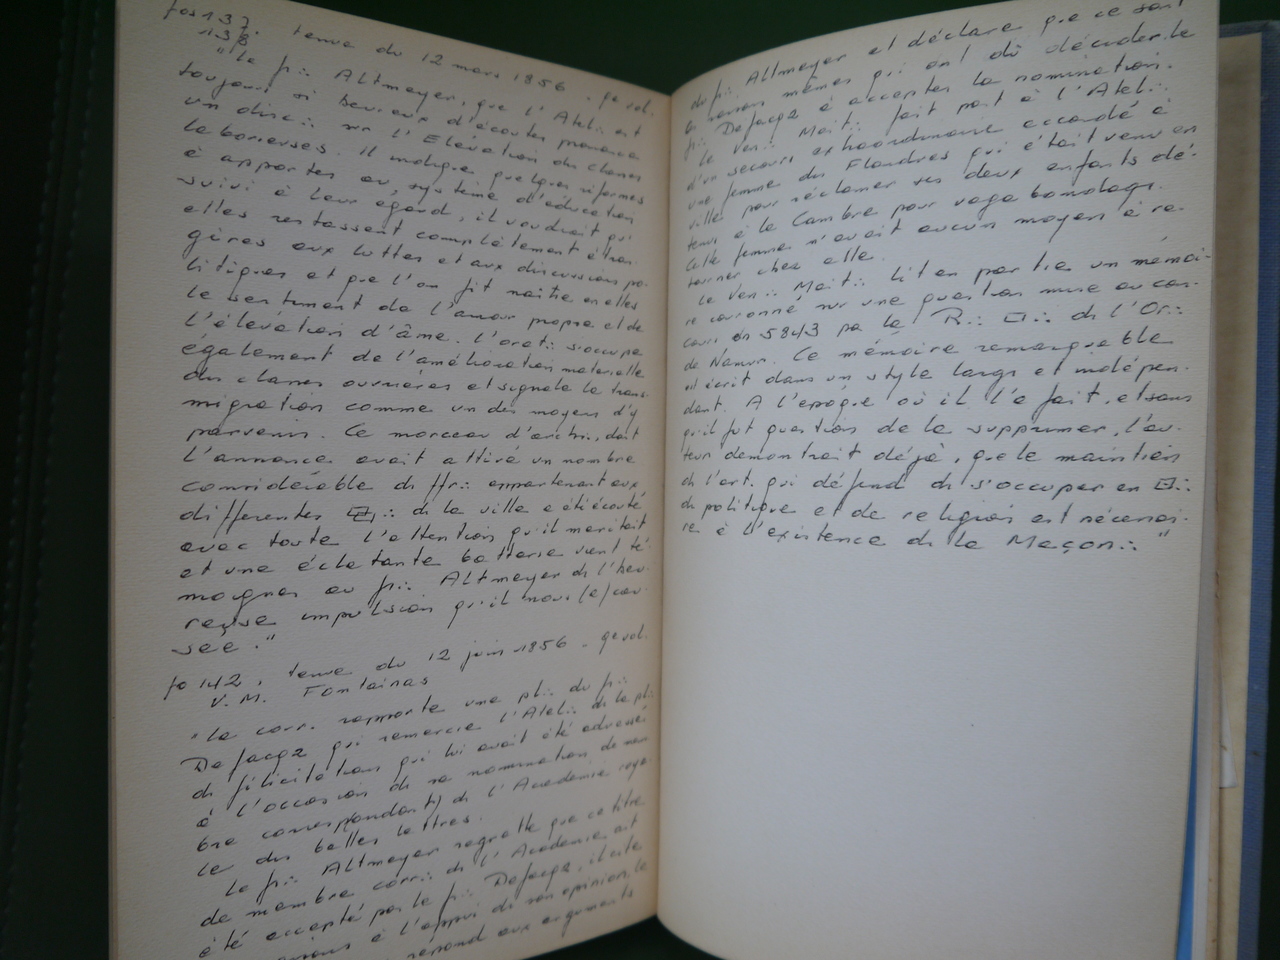 fos 137.
138 tenue du 12 mars 1856. 9e vol.
"Le fr∴ Altmeyer, que l'Atel∴ est
toujours si heureux d'écouter prononce
un disc∴ sur l'Elévation des classes
laborieuses. Il indique quelques réformes
à apporter au système d'éducation
suivi à leur égard, il voudrait qu'
elles restassent complètement étran-
gères aux luttes et aux discussions po-
litiques et que l'on fit naître en elles
le sentiment de l'amour propre et de
l'élévation d'âme. L'orat∴ s'occupe
également de l'amélioration matérielle
des classes ouvrières et signale la trans-
migration comme un des moyens d'y
parvenir. Ce morceau d'archi, dont
l'annonce avait attiré un nombre
considérable de ffr∴ appartenant aux
différentes ⌑∴ de la ville a été écouté
avec toute l'attention qu'il méritait
et une éclatante batterie vient té-
moigner au fr∴ Altmeyer de l'heu-
reuse impulsion qu'il nous (a) cau-
sée."
fo 142. tenue du 12 juin 1856. 9e vol.
V. M. Fontainas
"La corr. rapporte une pl∴ du fr∴
Defacqz qui remercie l'Atel∴ de la pl∴
de félicitation qui lui avait été adressée
à l'occasion de sa nomination de mem-
bre correspondant) de l'Académie roya-
le des belles lettres.
Le fr∴ Altmeyer regrette que ce titre
de membre corr∴ de l'Académie ait
été accepté par le fr∴ Defacqz, il cite
à l'appui de son opinion, le
répond aux arguments
du fr∴ Altmeyer et déclare que ce sont
les raisons mêmes qui ont dû décider le
fr∴ Defacqz à accepter la nomination.
Le Ven∴ Mait∴ fait part à l'Atel∴
d'un secours extraordinaire accordé à
une femme des Flandres qui était venu en
ville pour réclamer ses deux enfants dé-
tenus à la Cambre pour vagabondage.
Cette femme n'avait aucun moyen de re-
tourner chez elle.
Le Ven∴ Mait∴ lit en partie un mémoi-
re couronné sur une question mise au con-
cours en 5843 par la R∴ □∴ de l'Or∴
de Namur. Ce mémoire remarquable
est écrit dans un style large et indépen-
dant. A l'époque où il l'a fait, et sans
qu'il fut question de le supprimer, l'au-
teur démontrait déjà, que le maintien
de l'art. qui défend de s'occuper en ⌑∴
de politique et de religion est nécessai-
re à l'existence de la Maçon∴"